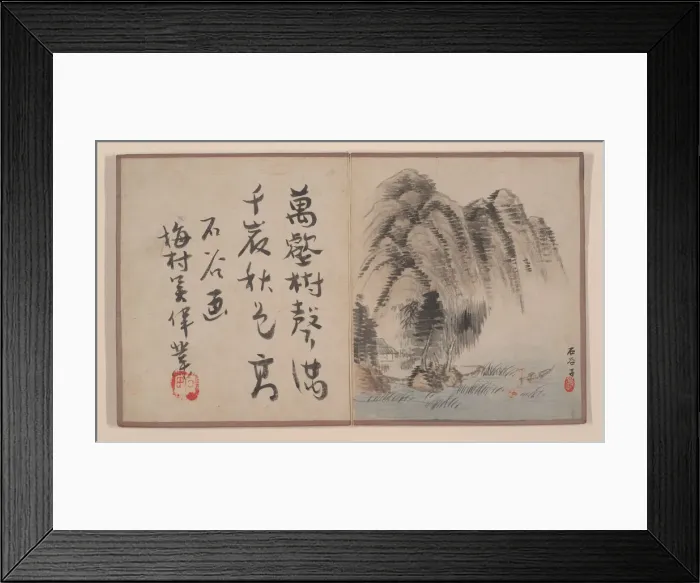 萬壑樹聲滿
千崖秋色高
石谷画
梅村吴偉業
石谷子